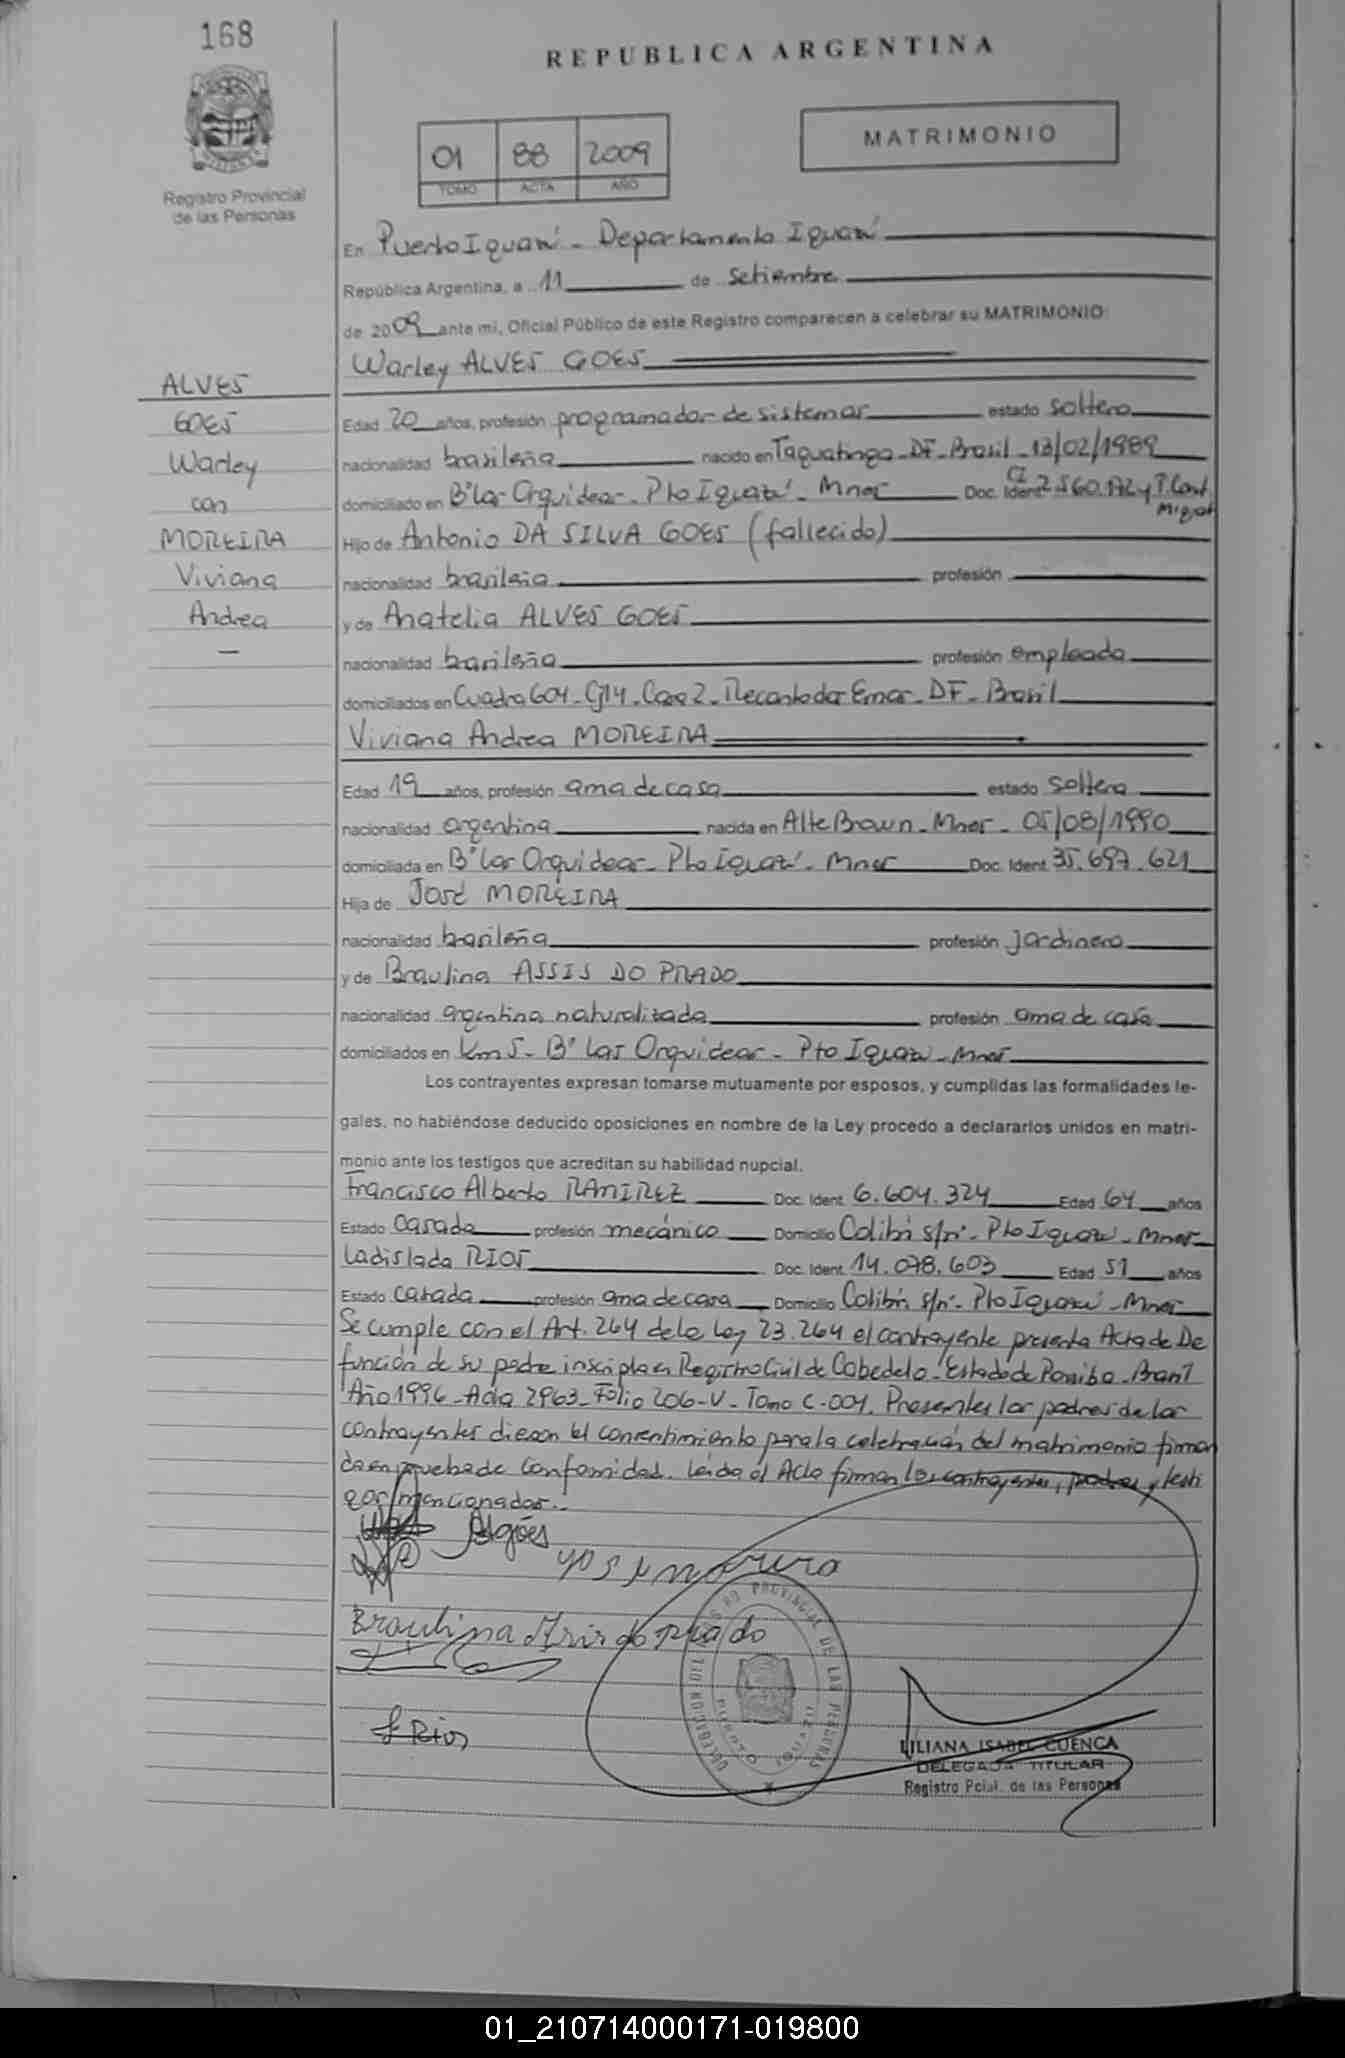 168
REPUBLICA ARGENTINA
Registro Provincial
de las Personas
01 88 2009
TOMO ACTA AÑO
MATRIMONIO
En Puerto Iguazú - Departamento Iguazú
República Argentina, a 11 de Setiembre
de 2009 ante mi, Oficial Público de este Registro comparecen a celebrar su MATRIMONIO:
Warley ALVES GOES
ALVES
GOES
Warley
con
MOREIRA
Viviana
Andrea
Edad 20 años, profesión programador de sistemas estado soltero
nacionalidad brasileña nacido en Taguatinga - DF - Brasil - 13/02/1989
domiciliado en Bº Las Orquideas - Pto Iguazú - Mnes Doc. Ident CI 2.560.172 y T. Cont. Migat
Hijo de Antonio DA SILVA GOES (fallecido)
nacionalidad brasileña profesión
y de Anatelia ALVES GOES
nacionalidad brasileña profesión empleada
domiciliados en Cuadra 604 - CJ14 - Casa 2 - Recanto das Emas - DF - Brasil
Viviana Andrea MOREIRA
Edad 19 años, profesión ama de casa estado soltera
nacionalidad argentina nacida en Alte Brown - Mnes - 05/08/1990
domiciliada en Bº Las Orquideas - Pto Iguazú - Mnes Doc. Ident 35.697.621
Hija de José MOREIRA
nacionalidad brasileña profesión jardinero
y de Braulina ASSIS DO PRADO
nacionalidad argentina naturalizada profesión ama de casa
domiciliados en Km 5 - Bº Las Orquideas - Pto Iguazu - Mnes
Los contrayentes expresan tomarse mutuamente por esposos, y cumplidas las formalidades le-
gales, no habiéndose deducido oposiciones en nombre de la Ley procedo a declararlos unidos en matri-
monio ante los testigos que acreditan su habilidad nupcial.
Francisco Alberto RAMIREZ Doc. Ident 6.604.324 Edad 64 años
Estado Casado profesión mecánico Domicilio Colibrí s/nº - Pto Iguazu - Mnes
Ladislada RIOS Doc. Ident 14.078.603 Edad 51 años
Estado casada profesión ama de casa Domicilio Colibrí s/nº - Pto Iguazú - Mnes
Se cumple con el Art. 264 de la Ley 23.264 el contrayente presenta Acta de De
función de su padre inscripta en Registro Civil de Cabedelo - Estado de Paraiba - Brasil
Año 1996 - Acta 2963 - Folio 206-V - Tomo C-004. Presentes los padres de los
contrayentes dieron el consentimiento para la celebración del matrimonio firman
do en prueba de conformidad. Leída el Acta firman los contrayentes, padres y testi
gos mencionados.-
Algóes
Braulina Assis do Prado
L Rios
DELEGACION DEL REGISTRO PROVINCIAL DE LAS PERSONAS
PUERTO IGUAZU
LILIANA ISABEL CUENCA
DELEGADA TITULAR
Registro Pcial. de las Personas
01_210714000171-019800